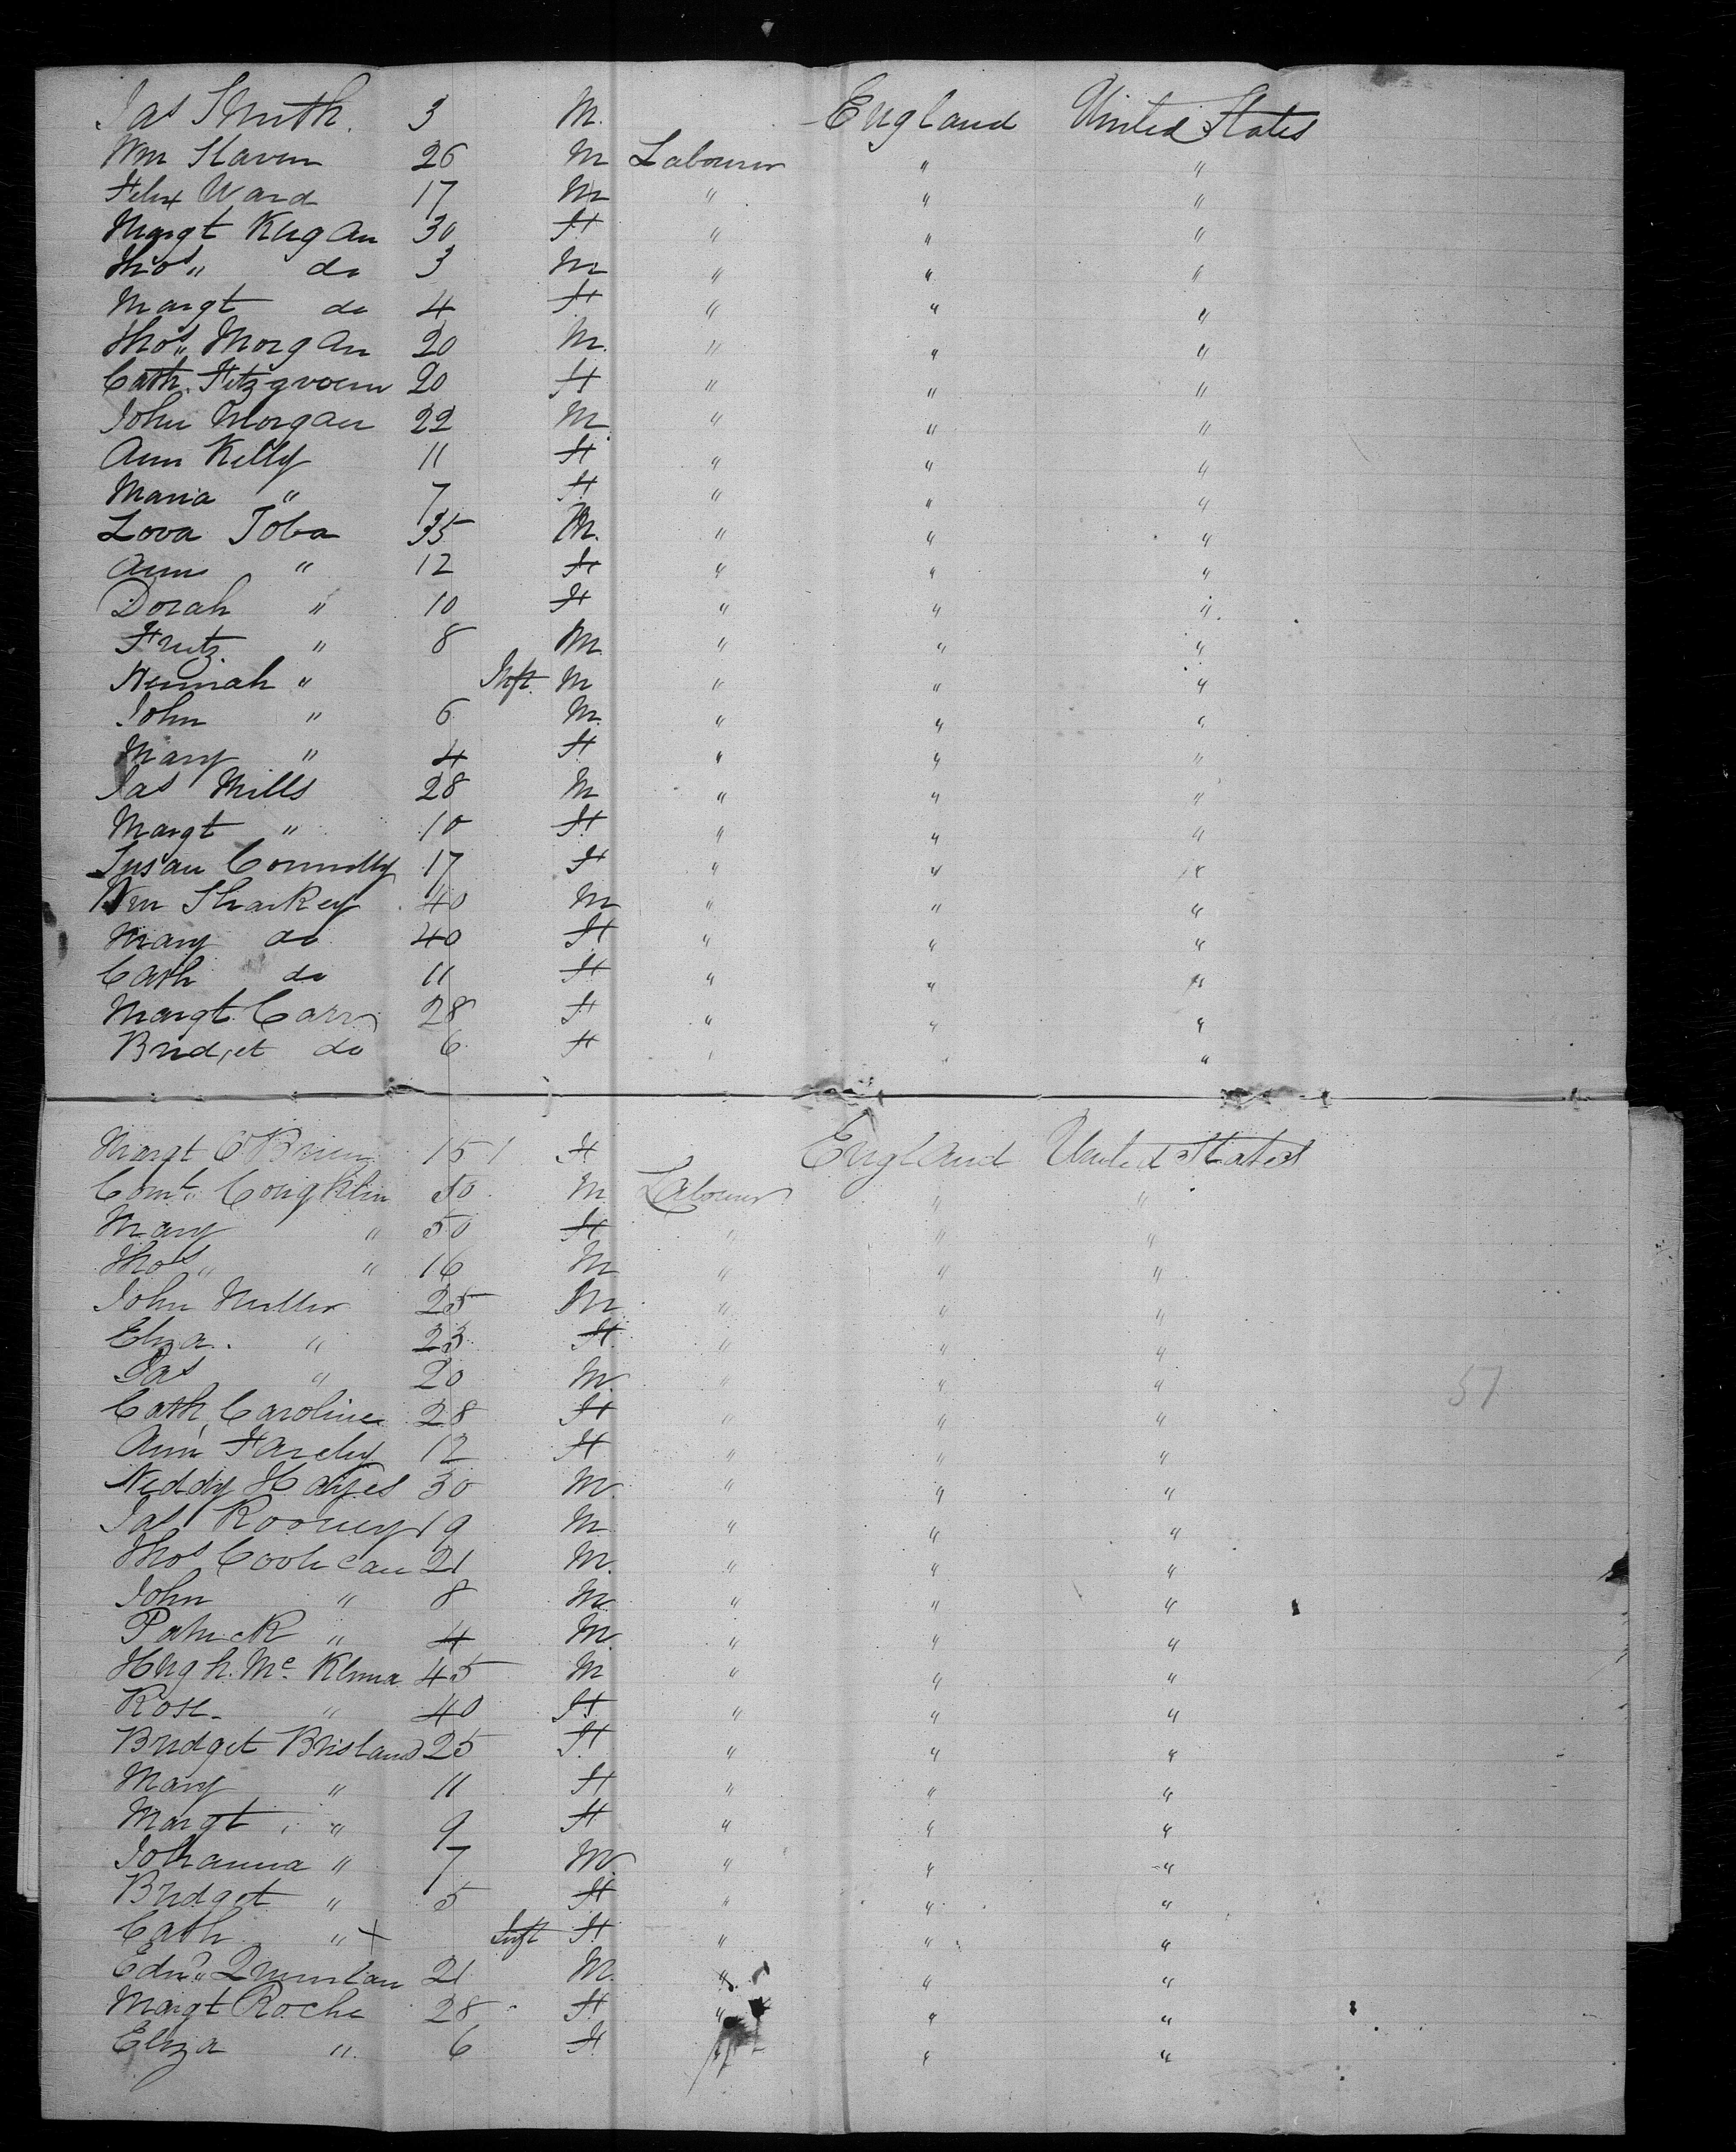 Jas Smith. 3 M. England United States
Wm Slaven 26 M Labourer " "
Felix Ward 17 M " " "
Margt Kegan 30 F " " "
Thos" do 3 M " " "
Margt do 4 F " " "
Thos" Morgan 20 M. " " "
Cath. 20 F " " "
John Morgan 22 M " " "
Ann Kelly 11 F " " "
Maria " 7 F " " "
Lova Toba 35 M. " " "
Ann " 12 F " " "
Dorah " 10 F " " "
Fritz " 8 M " " "
" Inft. M " " "
John " 6 M. " " "
Mary " 4 F " " "
Jas Mills 28 M " " "
Margt " 10 F " " "
Susan Connolly 17 F " " "
Wm Sharkey 40 M " " "
Mary do 40 F " " "
Cath do 11 F " " "
Margt. Carr 28 F " " "
Bridget do 6 F " " "
Margt O'Brien 15 F England United States
Cont. Coughlin 50 M Labourer " "
Mary " 50 F " " "
Thos" " 16 M " " "
John 25 M " " "
Eliza. " 23 F " " "
Jas " 20 M. " " "
Cath Caroline 28 F " " "
Ann Farely 12 F " " "
Neddy Hayes 30 M. " " "
Jas Rooney 19 M " " "
Thos Coolican 21 M. " " "
John " 8 M " " "
Patrick " 4 M " " "
Hugh. Mc Kenna 45 M " " "
Rose " 40 F " " "
Bridget Brisland 25 F " " "
Mary " 11 F " " "
Margt " 9 F " " "
Johanna " 7 M. " " "
Bridget " 5 F " " "
Cath " x Inft F " " "
Edwd" Quinlan 21 M. " " "
Margt Roche 28 F " " "
Eliza " 6 F " " "
51